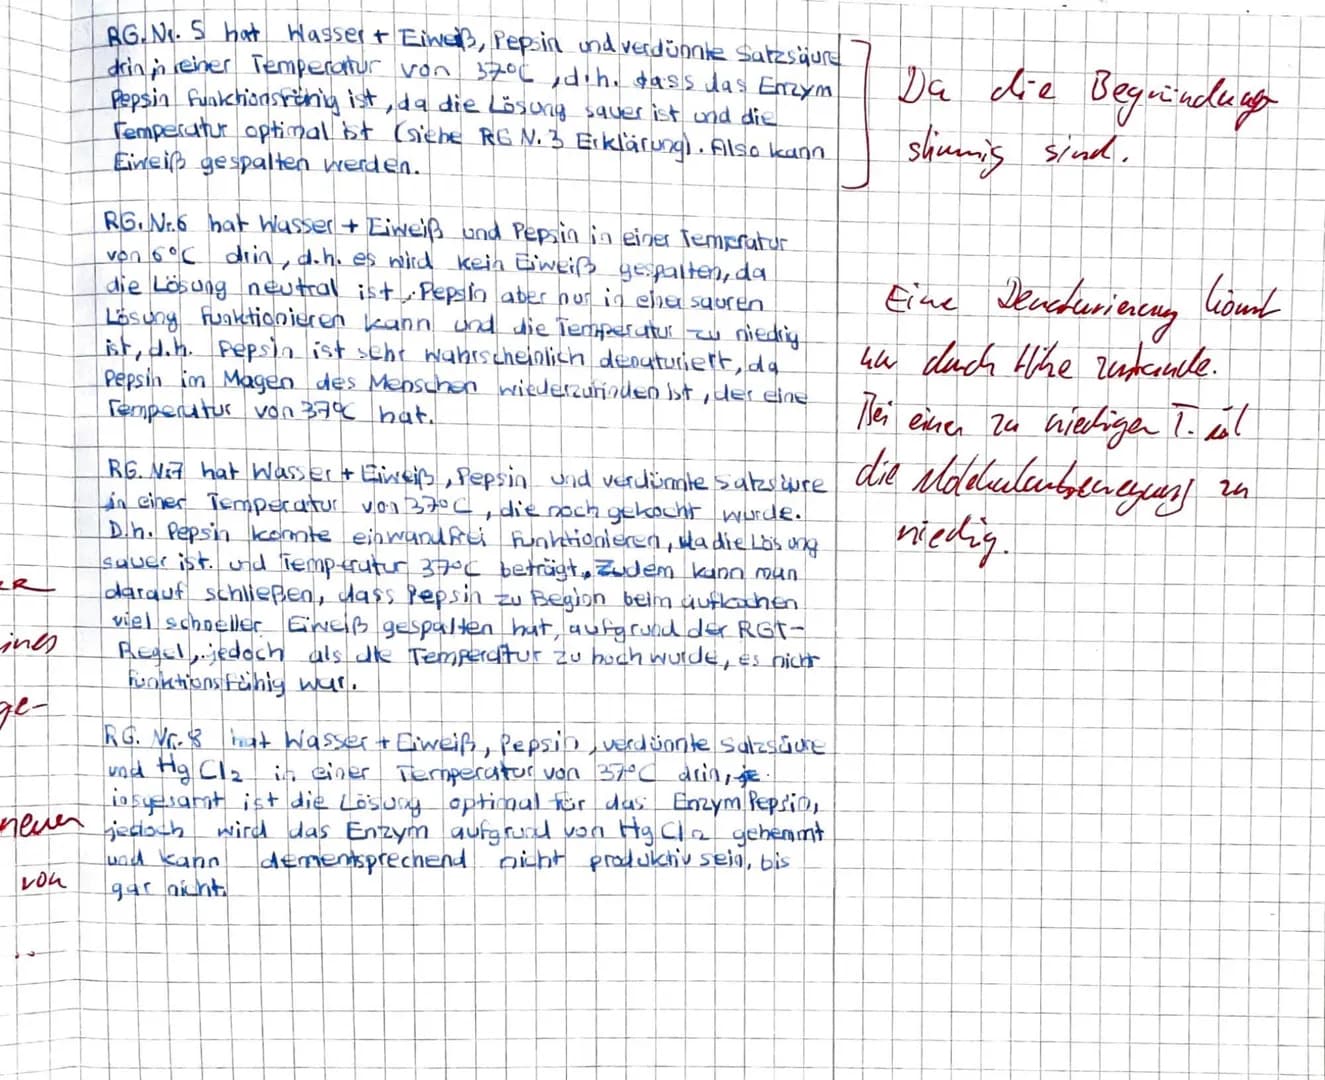 RG. Nr. 5 hat Wasser + Eiweiß, Pepsin und verdünnte Salzsäure
drin in einer Temperatur von 37°C, d.h. dass das Enzym
Pepsin funktionsfähig ist, da die Lösung sauer ist und die
Temperatur optimal ist (siehe RG N. 3 Erklärung). Also kann
Eiweiß gespalten werden.
Da die Begründungen
stimmig sind.
RG. Nr. 6 hat Wasser + Eiweiß und Pepsin in einer Temperatur
von 6°C drin, d.h. es wird kein Eiweiß gespalten, da
die Lösung neutral ist, Pepsin aber nur in einer sauren
Lösung funktionieren kann und die Temperatur zu niedrig
ist, d.h. Pepsin ist sehr wahrscheinlich denaturiert, da
Pepsin im Magen des Menschen wiederzufinden ist, der eine
Temperatur von 37°C hat.
Eine Denaturierung kommt
nur durch Hitze zustande.
Bei einer zu niedrigen T. ist
die Molekularbewegung zu
niedrig.
RG. Nr. 7 hat Wasser + Eiweiß, Pepsin und verdünnte Salzsäure
in einer Temperatur von 37°C, die noch gekocht wurde.
D.h. Pepsin konnte einwandfrei funktionieren, da die Lösung
sauer ist. und Temperatur 37°C beträgt. Zudem kann man
darauf schließen, dass Pepsin zu Beginn beim aufkochen
viel schneller Eiweiß gespalten hat, aufgrund der RGT-
Regel, jedoch als die Temperatur zu hoch wurde, es nicht
funktionsfähig war.
RG. Nr. 8 hat Wasser + Eiweiß, Pepsin, verdünnte Salzsäure
und Hg Cl2 in einer Temperatur von 37°C drin,
insgesamt ist die Lösung optimal für das Enzym Pepsin,
jedoch wird das Enzym aufgrund von Hg Cl2 gehemmt
und kann dementsprechend nicht produktiv sein, bis
gar nicht.
ines
ge-
neuen
von